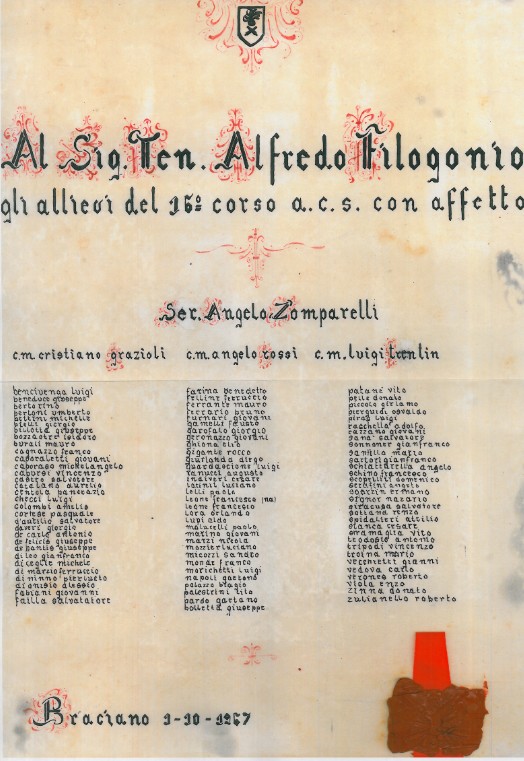 Al Sig. Ten. Alfredo Filogonio
gli allievi del 16º corso a.c.s. con affetto
Ser. Angelo Zomparelli
c.m. cristiano grazioli c.m. angelo rossi c.m. luigi trentin
bencivenga luigi
beneduce giuseppe
berto rino
bertoni umberto
bettini michele
bielli giorgio
billotta giuseppe
bozzaotre isidoro
burali mauro
cagnazzo franco
caporaletti giovani
caboraso michelangelo
capursi vincenzo
castro salvatore
catalano aurelio
centola pancrazio
ciccsi luigi
colombi amelio
cortese pasquale
d'autilio salvatore
daveri giorgio
de carlo antonio
de felicis giuseppe
de santis giuseppe
di leo gianfranco
di ceglie michele
di marzio ferruccio
di ninno pierluigi
di dionisio alessio
fabiani giovanni
failla salvatatore
farina benedetto
fellini ferruccio
ferrante mauro
ferrario bruno
furnari giovani
gamelli fausto
garofalo giorgio
geronazzo giovani
ghiona elio
gigante rocco
giurlanda afro
guardascione luigi
ianucci augusto
inaiveri cesare
latini luciano
lelli paolo
leone francesco (na)
leone francesco
lora orlando
lupi aldo
malurelli paolo
marino giovani
marzi nicola
mozzer luciano
miceori sandro
monda franco
morichetti luigi
napoli gaetano
polazzo biagio
palestrini tito
pardo gaetano
bolletta giuseppe
patanè vito
pelle donato
piccolo girlamo
pierguidi osvaldo
piras luigi
raschella adolfo
razzano giovani
sana' salvatore
sonnoner gianfranco
santilla mario
sartori gianfranco
schiattarella angelo
schino francesco
scopilliti domenico
serafini angelo
sgorlin ermano
signor nazario
siracusa salvatore
soliana renzo
spidalieri attilio
stanca cesare
stramaglia vito
teodosio antonio
tripodi vincenzo
troina mario
vecchietti gianni
vedova carlo
verones roberto
viola enzo
zinna donato
zulianello roberto
Braciano 1-10-1967